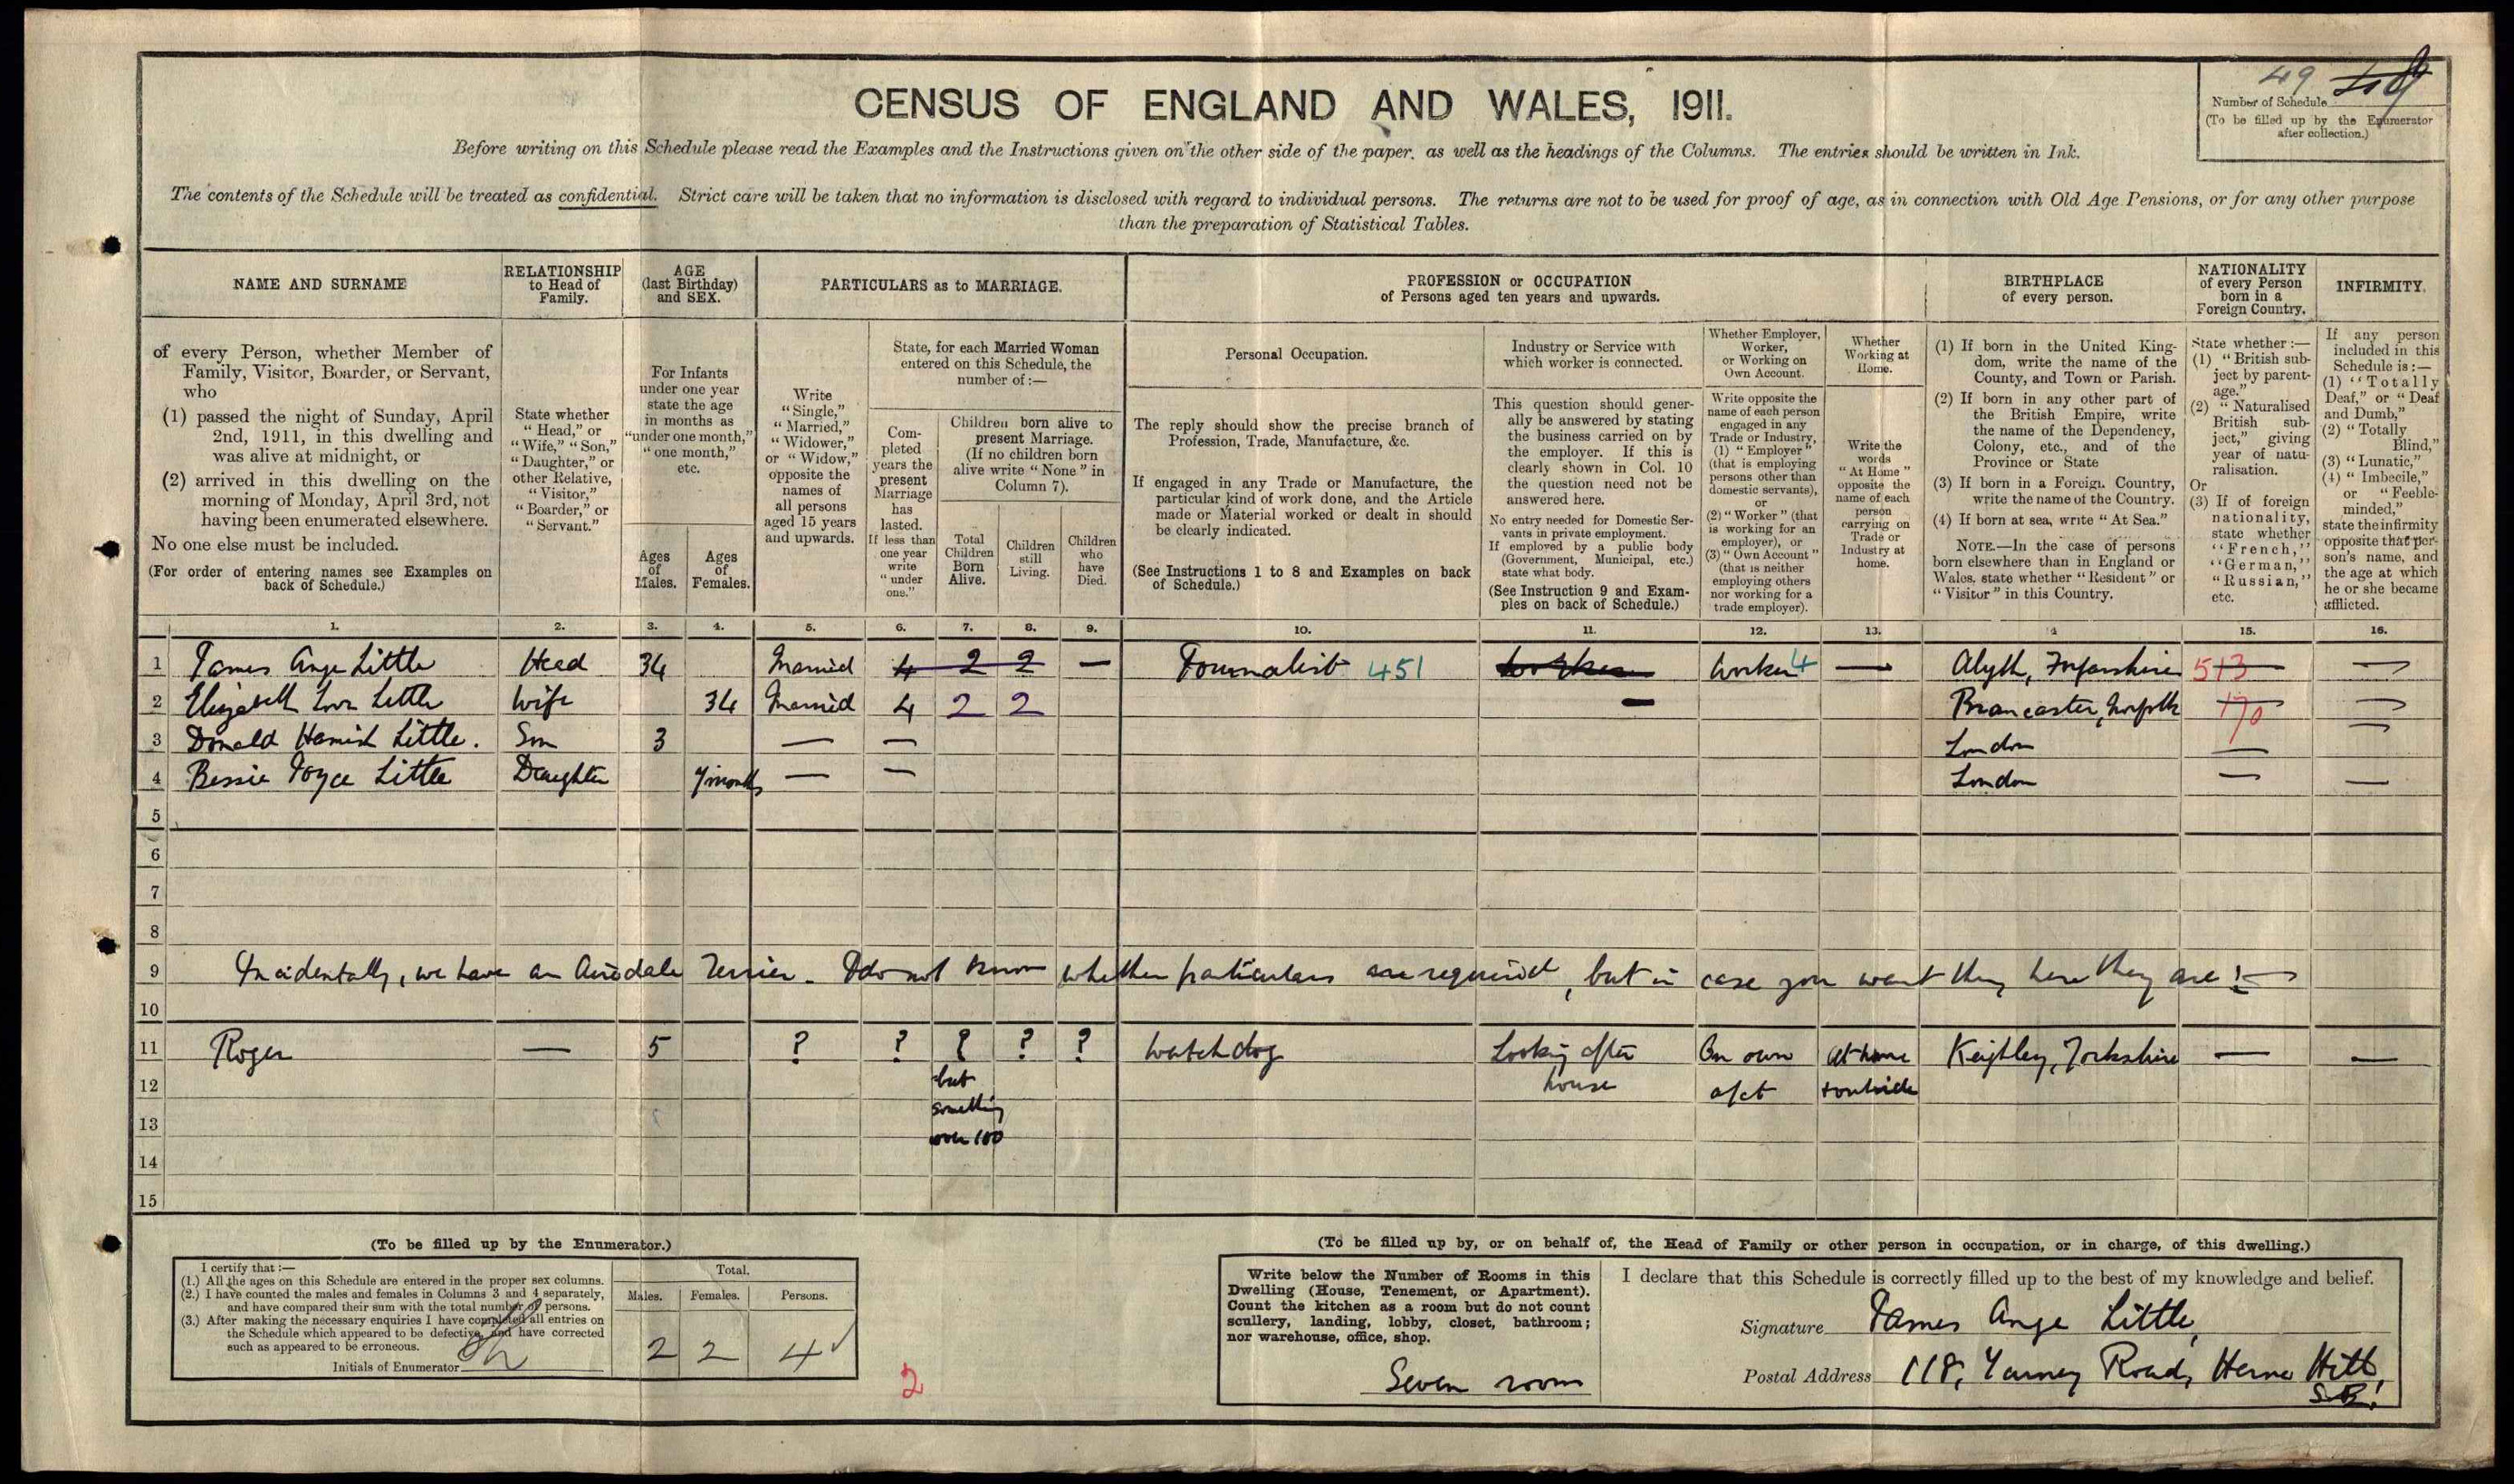 49
Number of Schedule
(To be filled up by the Enumerator
after collection.)
CENSUS OF ENGLAND AND WALES, 1911.
Before writing on this Schedule please read the Examples and the Instructions given on the other side of the paper, as well as the headings of the Columns. The entries should be written in Ink.
The contents of the Schedule will be treated as confidential. Strict care will be taken that no information is disclosed with regard to individual persons. The returns are not to be used for proof of age, as in connection with Old Age Pensions, or for any other purpose
than the preparation of Statistical Tables.
NAME AND SURNAME
of every Person, whether Member of
Family, Visitor, Boarder, or Servant,
who
(1) passed the night of Sunday, April
2nd, 1911, in this dwelling and
was alive at midnight, or
(2) arrived in this dwelling on the
morning of Monday, April 3rd, not
having been enumerated elsewhere.
No one else must be included.
(For order of entering names see Examples on
back of Schedule.)
RELATIONSHIP
to Head of
Family.
State whether
"Head," or
"Wife," "Son,"
"Daughter," or
other Relative,
"Visitor,"
"Boarder," or
"Servant."
AGE
(last Birthday)
and SEX.
For Infants
under one year
state the age
in months as
"under one month,"
"one month,"
etc.
Ages
of
Males.
Ages
of
Females.
PARTICULARS as to MARRIAGE.
Write
"Single,"
"Married,"
"Widower,"
or "Widow,"
opposite the
names of
all persons
aged 15 years
and upwards.
State, for each Married Woman
entered on this Schedule, the
number of :—
Com-
pleted
years the
present
Marriage
has
lasted.
If less than
one year
write
"under
one."
Children born alive to
present Marriage.
(If no children born
alive write "None" in
Column 7).
Total
Children
Born
Alive.
Children
still
Living.
Children
who
have
Died.
PROFESSION or OCCUPATION
of Persons aged ten years and upwards.
Personal Occupation.
The reply should show the precise branch of
Profession, Trade, Manufacture, &c.
If engaged in any Trade or Manufacture, the
particular kind of work done, and the Article
made or Material worked or dealt in should
be clearly indicated.
(See Instructions 1 to 8 and Examples on back
of Schedule.)
Industry or Service with
which worker is connected.
This question should gener-
ally be answered by stating
the business carried on by
the employer. If this is
clearly shown in Col. 10
the question need not be
answered here.
No entry needed for Domestic Ser-
vants in private employment.
If employed by a public body
(Government, Municipal, etc.)
state what body.
(See Instruction 9 and Exam-
ples on back of Schedule.)
Whether Employer,
Worker,
or Working on
Own Account.
Write opposite the
name of each person
engaged in any
Trade or Industry,
(1) "Employer"
(that is employing
persons other than
domestic servants),
or
(2) "Worker" (that
is working for an
employer), or
(3) "Own Account"
(that is neither
employing others
nor working for a
trade employer).
Whether
Working at
Home.
Write the
words
"At Home"
opposite the
name of each
person
carrying on
Trade or
Industry at
home.
BIRTHPLACE
of every person.
(1) If born in the United King-
dom, write the name of the
County, and Town or Parish.
(2) If born in any other part of
the British Empire, write
the name of the Dependency,
Colony, etc., and of the
Province or State
(3) If born in a Foreign Country,
write the name of the Country.
(4) If born at sea, write "At Sea."
NOTE.—In the case of persons
born elsewhere than in England or
Wales, state whether "Resident" or
"Visitor" in this Country.
NATIONALITY
of every Person
born in a
Foreign Country.
State whether :—
(1) "British sub-
ject by parent-
age."
(2) "Naturalised
British sub-
ject," giving
year of natu-
ralisation.
Or
(3) If of foreign
nationality,
state whether
"French,"
"German,"
"Russian,"
etc.
INFIRMITY.
If any person
included in this
Schedule is :—
(1) "Totally
Deaf," or "Deaf
and Dumb,"
(2) "Totally
Blind,"
(3) "Lunatic,"
(4) "Imbecile,"
or "Feeble-
minded,"
state the infirmity
opposite that per-
son's name, and
the age at which
he or she became
afflicted.
1. 2. 3. 4. 5. 6. 7. 8. 9. 10. 11. 12. 13. 14 15. 16.
1 James Ange Little Head 34 Married 4 2 2 — Journalist 451 Worker Worker 4 — Alyth, Forfarshire 513 —
2 Elizabeth Little Wife 34 Married 4 2 2 — Brancaster, Norfolk 170 —
3 Donald Hamish Little. Son 3 — — London — —
4 Bessie Joyce Little Daughter 7 months — — London — —
5
6
7
8
9 Incidentally, we have an Airedale Terrier. I do not know whether particulars are required, but in case you want them here they are :—
10
11 Roger — 5 ? ? ? ? ? Watchdog Looking after On own At home Keighley, Yorkshire — —
12 but house a/ct & outside
something
13 over 100
14
15
(To be filled up by the Enumerator.)
I certify that :—
(1.) All the ages on this Schedule are entered in the proper sex columns.
(2.) I have counted the males and females in Columns 3 and 4 separately,
and have compared their sum with the total number of persons.
(3.) After making the necessary enquiries I have completed all entries on
the Schedule which appeared to be defective, and have corrected
such as appeared to be erroneous.
Initials of Enumerator
Total.
Males. Females. Persons.
2 2 4
2
(To be filled up by, or on behalf of, the Head of Family or other person in occupation, or in charge, of this dwelling.)
Write below the Number of Rooms in this
Dwelling (House, Tenement, or Apartment).
Count the kitchen as a room but do not count
scullery, landing, lobby, closet, bathroom;
nor warehouse, office, shop.
Seven room
I declare that this Schedule is correctly filled up to the best of my knowledge and belief.
Signature James Ange Little,
Postal Address 118, Road, Herne Hill,
S.E.